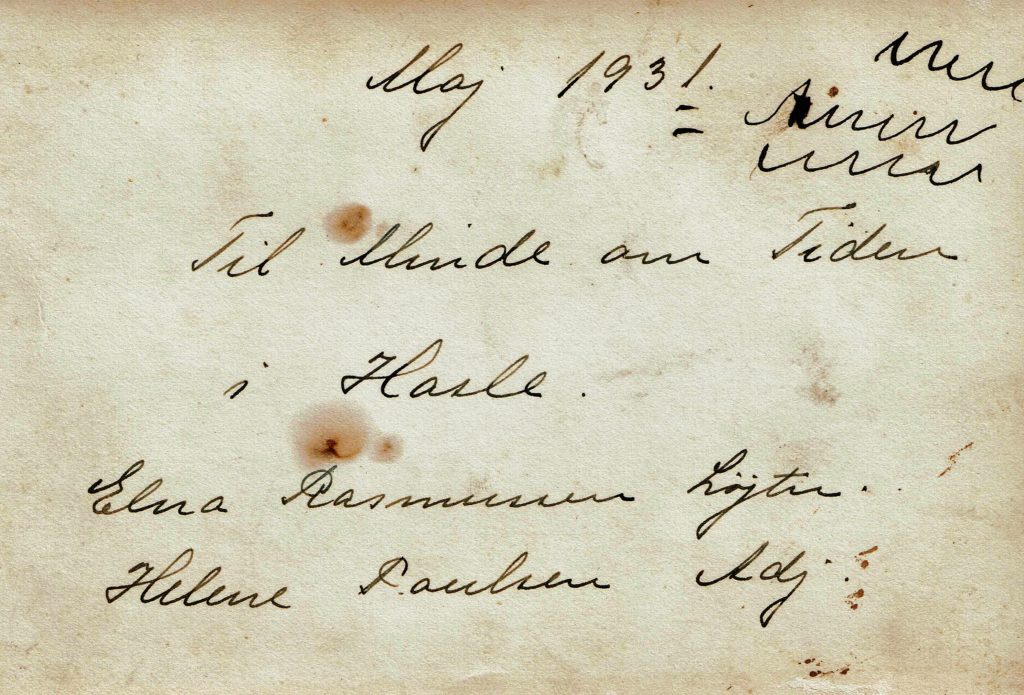 Maj 1931.
Til Minde om Tiden
i Hasle.
Elna Rasmussen Løjtn.
Helene Poulsen Adj.